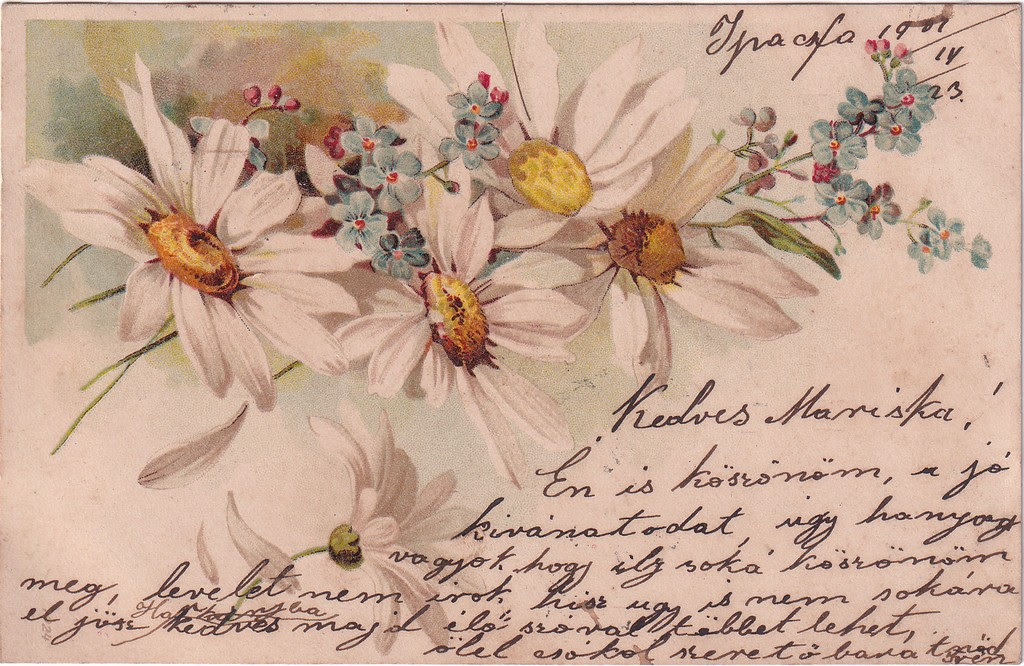 Ipacsfa 1901
IV
23.
Kedves Mariska!
Én is köszönöm, a jó
kivánatodat, ugy hanyag
vagyok hogy ily soká köszönöm
meg, levelet nem irok hisz ugy is nem sokára
el jösz Harkányba kedves majd élő szóval többet lehet,
ölel csókol szerető barat nőd